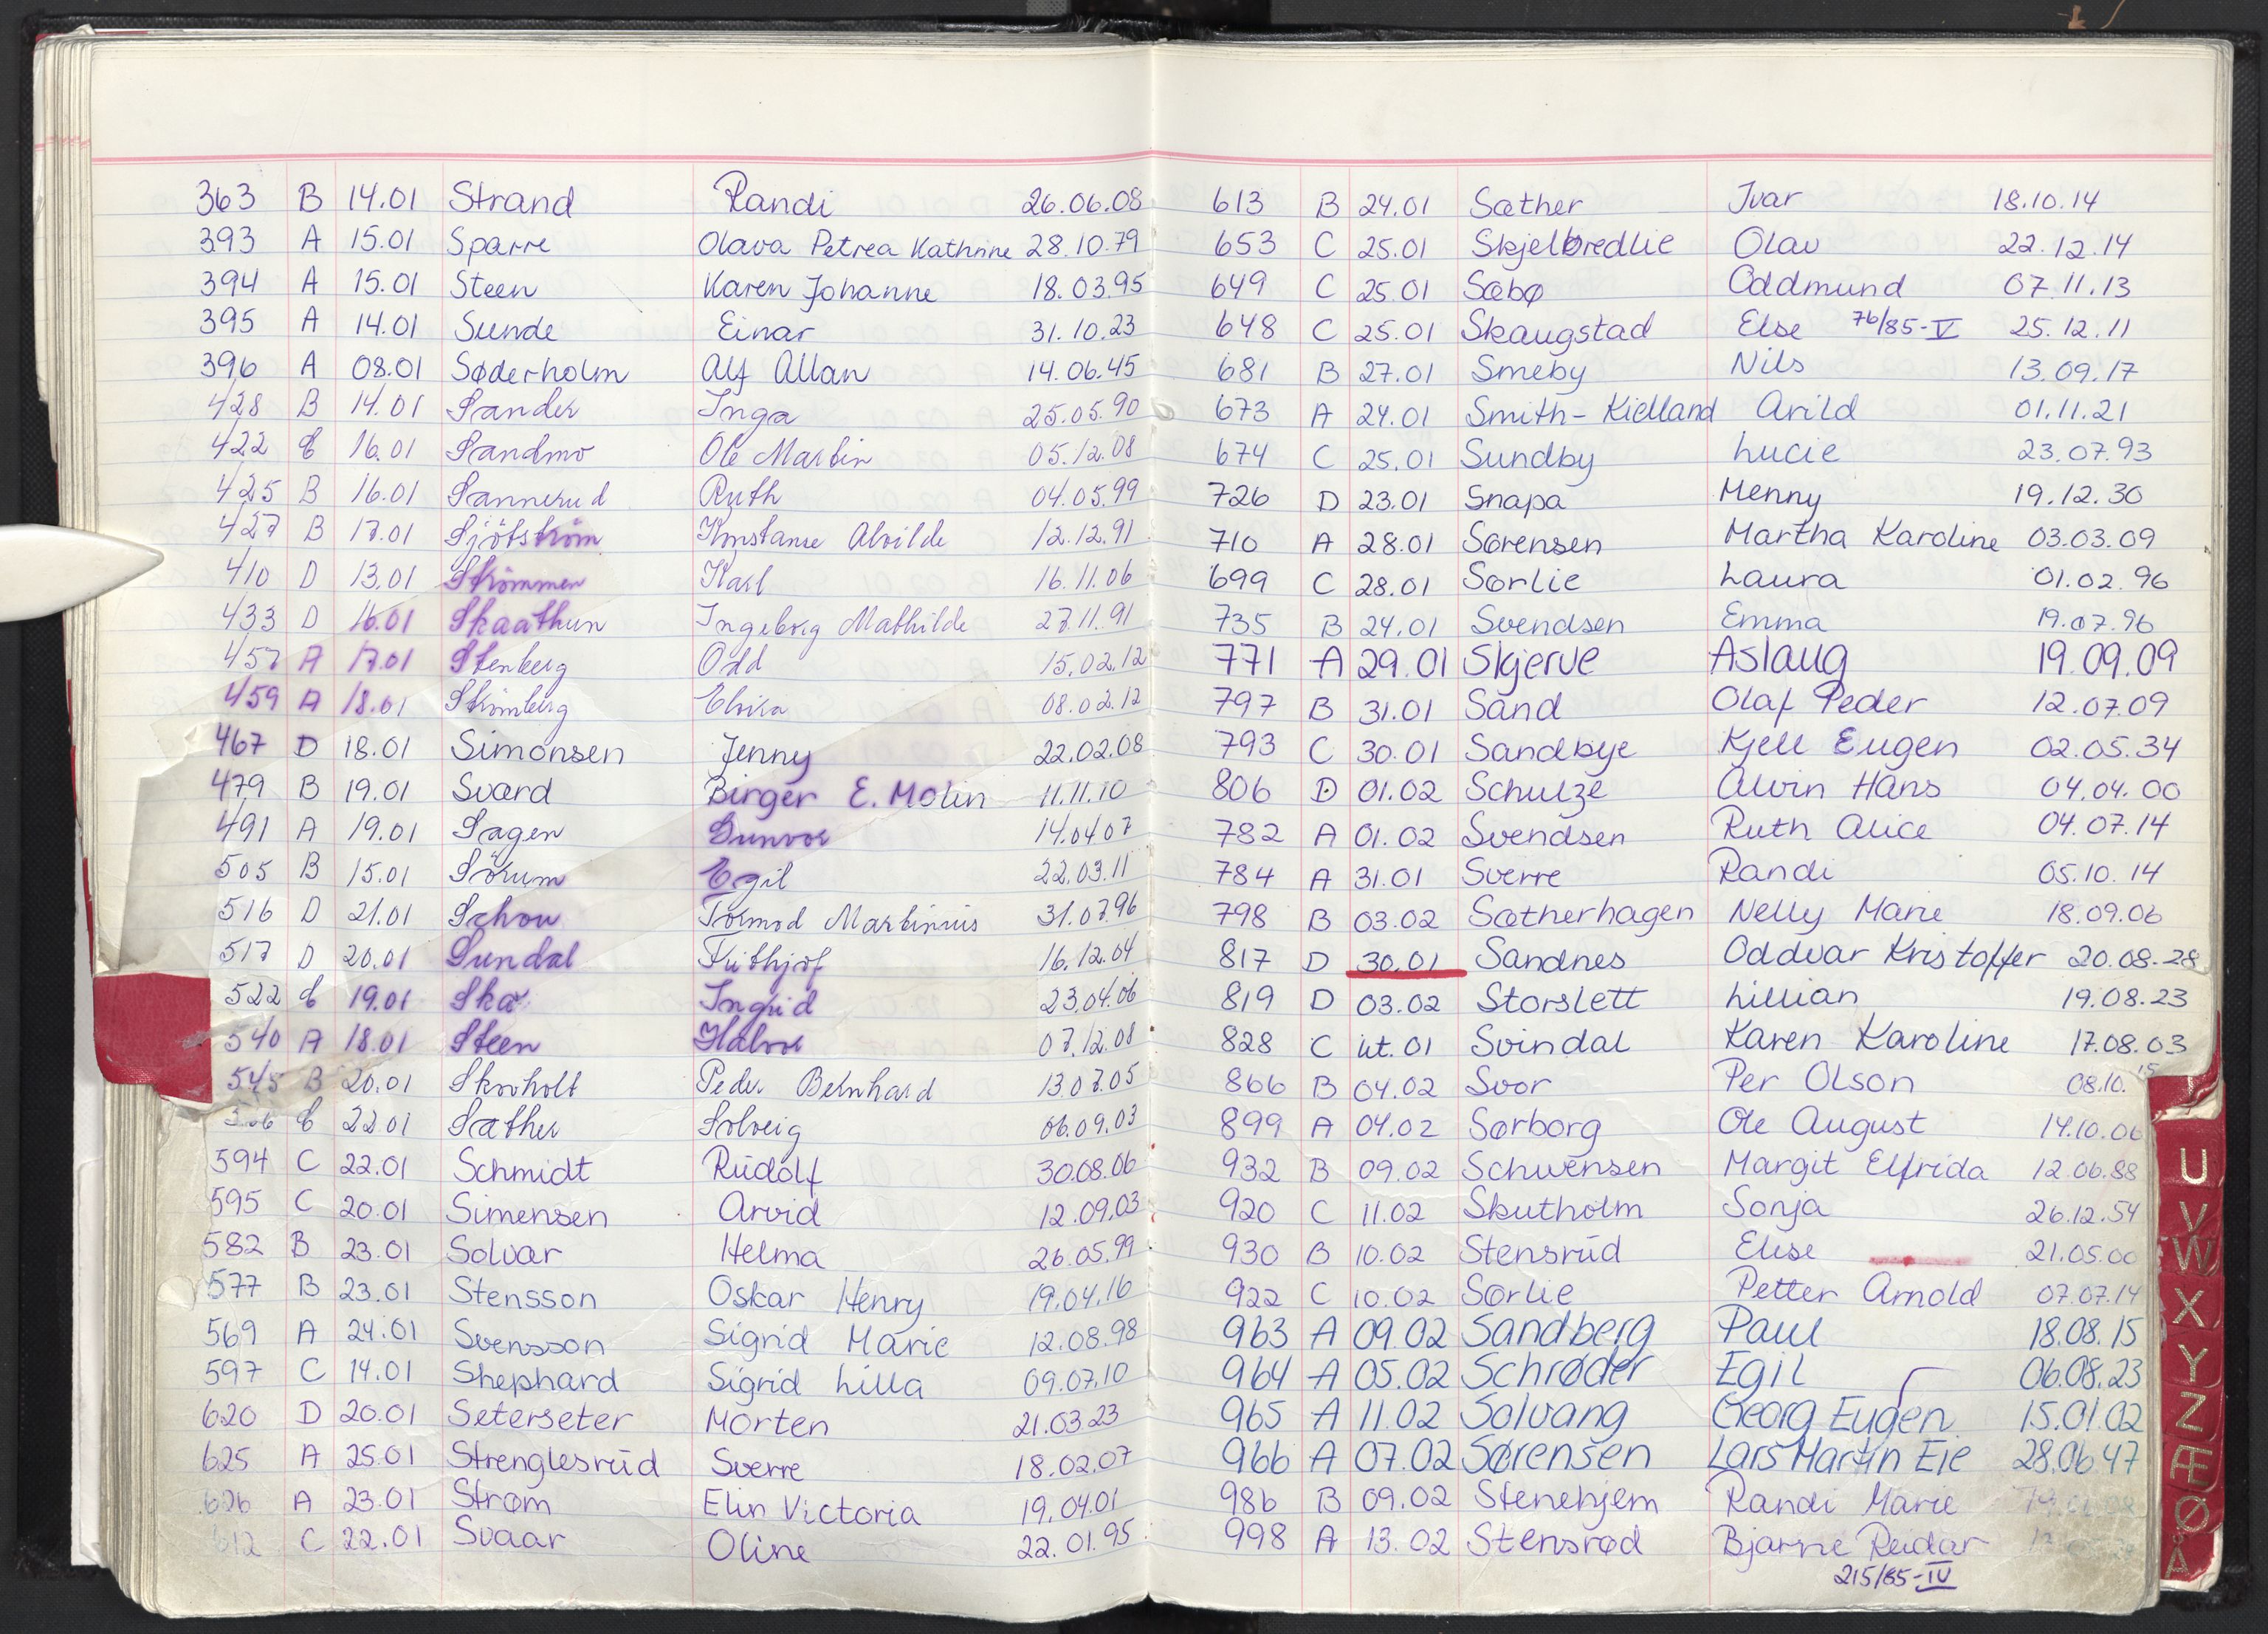 363 B 14.01 Strand Randi 26.06.08
393 A 15.01 Sparre Olava Petrea Kathrine 28.10.79
394 A 15.01 Steen Karen Johanne 18.03.95
395 A 14.01 Sunde Einar 31.10.23
396 A 08.01 Søderholm Alf Allan 14.06.45
428 B 14.01 Sander Inga 25.05.90
422 C 16.01 Sandmo Ole Martin 05.12.08
425 B 16.01 Sannerud Ruth 04.05.99
427 B 17.01 Sjötström Konstanse Alvilde 12.12.91
410 D 13.01 Strömmen Karl 16.11.06
433 D 16.01 Skaathun Ingeborg Mathilde 27.11.91
457 A 17.01 Stenberg Odd 15.02.12
459 A 18.01 Strömberg Elvira 08.02.12
467 D 18.01 Simonsen Jenny 22.02.08
479 B 19.01 Sværd Birger E. Molin 11.11.10
491 A 19.01 Sagen Gunvor 14.04.07
505 B 15.01 Sörum Egil 22.03.11
516 D 21.01 Schou Tormod Martinius 31.07.96
517 D 20.01 Sundal Frithjof 16.12.04
522 C 19.01 Ska Ingrid 23.04.06
540 A 18.01 Steen Halvor 07.12.08
545 B 20.01 Skovholt Peder Bernhard 13.07.05
C 22.01 Sæther Solveig 06.09.03
594 C 22.01 Schmidt Rudolf 30.08.06
595 C 20.01 Simensen Arvid 12.09.03
582 B 23.01 Solvar Helma 26.05.99
577 B 23.01 Stensson Oskar Henry 19.04.16
569 A 24.01 Svensson Sigrid Marie 12.08.98
597 C 14.01 Shephard Sigrid Lilla 09.07.10
620 D 20.01 Seterseter Morten 21.03.23
625 A 25.01 Strenglesrud Sverre 18.02.07
626 A 23.01 Strøm Elin Victoria 19.04.01
612 C 22.01 Svaar Oline 22.01.95
613 B 24.01 Sæther Ivar 18.10.14
653 C 25.01 Skjelbredlie Olav 22.12.14
649 C 25.01 Sæbø Oddmund 07.11.13
648 C 25.01 Skaugstad Else 76/85-V 25.12.11
681 B 27.01 Smeby Nils 13.09.17
673 A 24.01 Smith-Kielland Arild 01.11.21
674 C 25.01 Sundby Lucie 23.07.93
726 D 23.01 Snapa Menny 19.12.30
710 A 28.01 Sørensen Martha Karoline 03.03.09
699 C 28.01 Sørlie Laura 01.02.96
735 B 24.01 Svendsen Emma 19.07.96
771 A 29.01 Skjerve Aslaug 19.09.09
797 B 31.01 Sand Olaf Peder 12.07.09
793 C 30.01 Sandbye Kjell Eugen 02.05.34
806 D 01.02 Schulze Alvin Hans 04.04.00
782 A 01.02 Svendsen Ruth Alice 04.07.14
784 A 31.01 Sverre Randi 05.10.14
798 B 03.02 Sætherhagen Nelly Marie 18.09.06
817 D 30.01 Sandnes Oddvar Kristoffer 20.08.28
819 D 03.02 Storslett Lillian 19.08.23
828 C ut.01 Svindal Karen Karoline 17.08.03
866 B 04.02 Svor Per Olson 08.10.15
899 A 04.02 Sørborg Ole August 14.10.06
932 B 09.02 Schwensen Margit Elfrida 12.06.88
920 C 11.02 Skutholm Sonja 26.12.54
930 B 10.02 Stensrud Elise 21.05.00
922 C 10.02 Sørlie Petter Arnold 07.07.14
963 A 09.02 Sandberg Paul 18.08.15
964 A 05.02 Schrøder Egil 06.08.23
965 A 11.02 Solvang Georg Eugen 15.01.02
966 A 07.02 Sørensen Lars Martin Eie 28.06.47
986 B 09.02 Stenehjem Randi Marie
998 A 13.02 Stensrød Bjarne Reidar
215/85-IV
U
V
W
X
Y
Z
Æ
Ø
Å